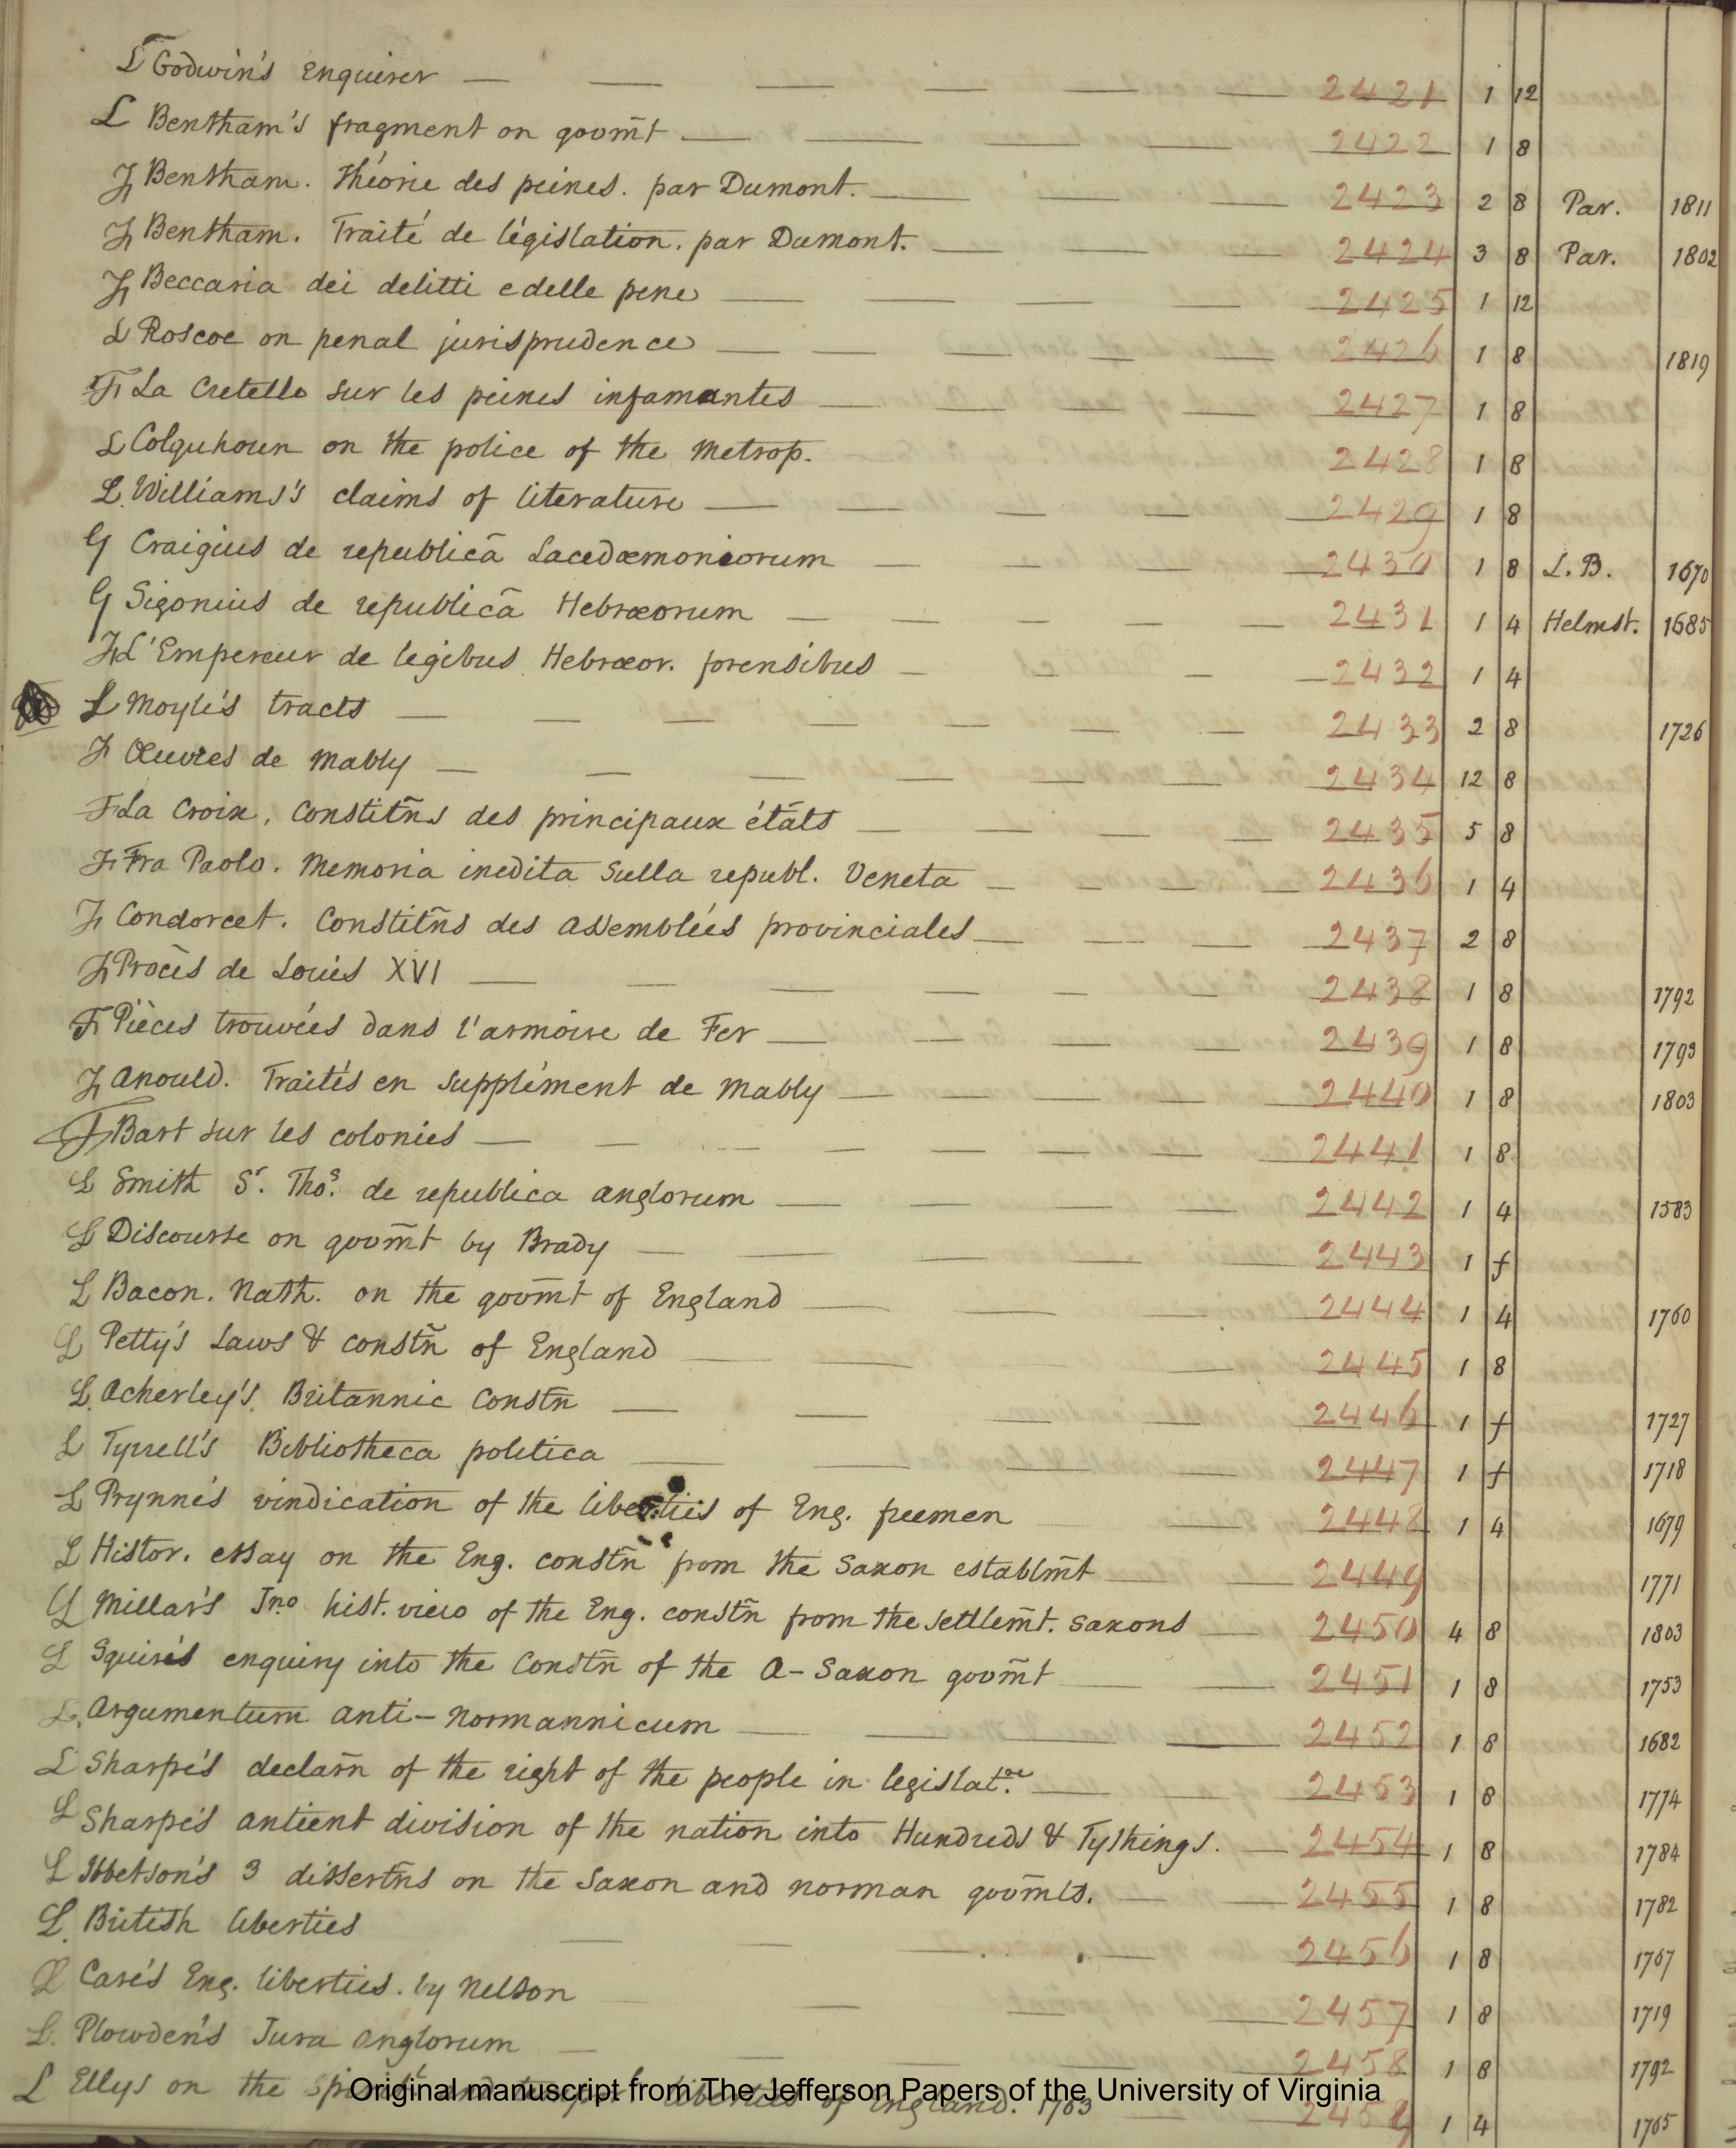 L Godwin's Enquirer — 2421 1 12
L Bentham's fragment on govm̃t — 2422 1 8
F Bentham. Théorie des peines. par Dumont. — 2423 2 8 Par. 1811
F Bentham. Traité de législation. par Dumont. — 2424 3 8 Par. 1802
F Beccaria dei delitti e delle pene — 2425 1 12
L Roscoe on penal jurisprudence — 2426 1 8 1819
F La Cretelle sur les peines infamantes — 2427 1 8
L Colquhoun on the police of the Metrop. 2428 1 8
L. Williams's claims of literature — 2429 1 8
G Craigius de republicâ Lacedæmoniorum — 2430 1 8 L.B. 1670
G Sigonius de republicâ Hebræorum — 2431 1 4 Helmst. 1685
F L'Empereur de legibus Hebræor. forensibus — 2432 1 4
L Moyle's tracts — 2433 2 8 1726
F Œuvres de Mably — 2434 12 8
F La Croix. Constitñs des principaux états — 2435 5 8
F Fra Paolo. Memoria inedita sulla republ. Veneta — 2436 1 4
F Condorcet. Constitñs des Assemblées provinciales — 2437 2 8
F Procès de Louis XVI — 2438 1 8 1792
F Pièces trouvées dans l'armoire de Fer — 2439 1 8 1793
F Anould. Traités en supplément de Mably — 2440 1 8 1803
F Bart sur les colonies — 2441 1 8
L Smith Sr. Thos. de republica Anglorum — 2442 1 4 1583
L Discourse on govm̃t by Brady — 2443 1 f
L Bacon. Nath. on the govm̃t of England — 2444 1 4 1760
L Petty's Laws & constñ of England — 2445 1 8
L. Acherley's Britannic Constñ — 2446 1 f 1727
L Tyrrell's Bibliotheca politica — 2447 1 f 1718
L Prynne's vindication of the liberties of Eng. freemen — 2448 1 4 1679
L Histor. essay on the Eng. constñ from the Saxon establm̃t — 2449 1771
G Millar's Jno. hist. view of the Eng. constñ from the settlem̃t. Saxons — 2450 4 8 1803
L Squire's enquiry into the Constñ of the A-Saxon govm̃t — 2451 1 8 1753
L. Argumentum Anti-Normannicum — 2452 1 8 1682
L Sharpe's declarñ of the right of the people in legislat.re — 2453 1 8 1774
L Sharpe's antient division of the nation into Hundreds & Tythings. — 2454 1 8 1784
L Ibbetson's 3 dissertñs on the Saxon and Norman govm̃ts. — 2455 1 8 1782
L. British liberties — 2456 1 8 1767
L Care's Eng. liberties. by Nelson — 2457 1 8 1719
L. Plowden's Jura Anglorum — 2458 1 8 1792
L Ellys on the liberties of England. 1763 2459 1 4 1765
Original manuscript from The Jefferson Papers of the University of Virginia